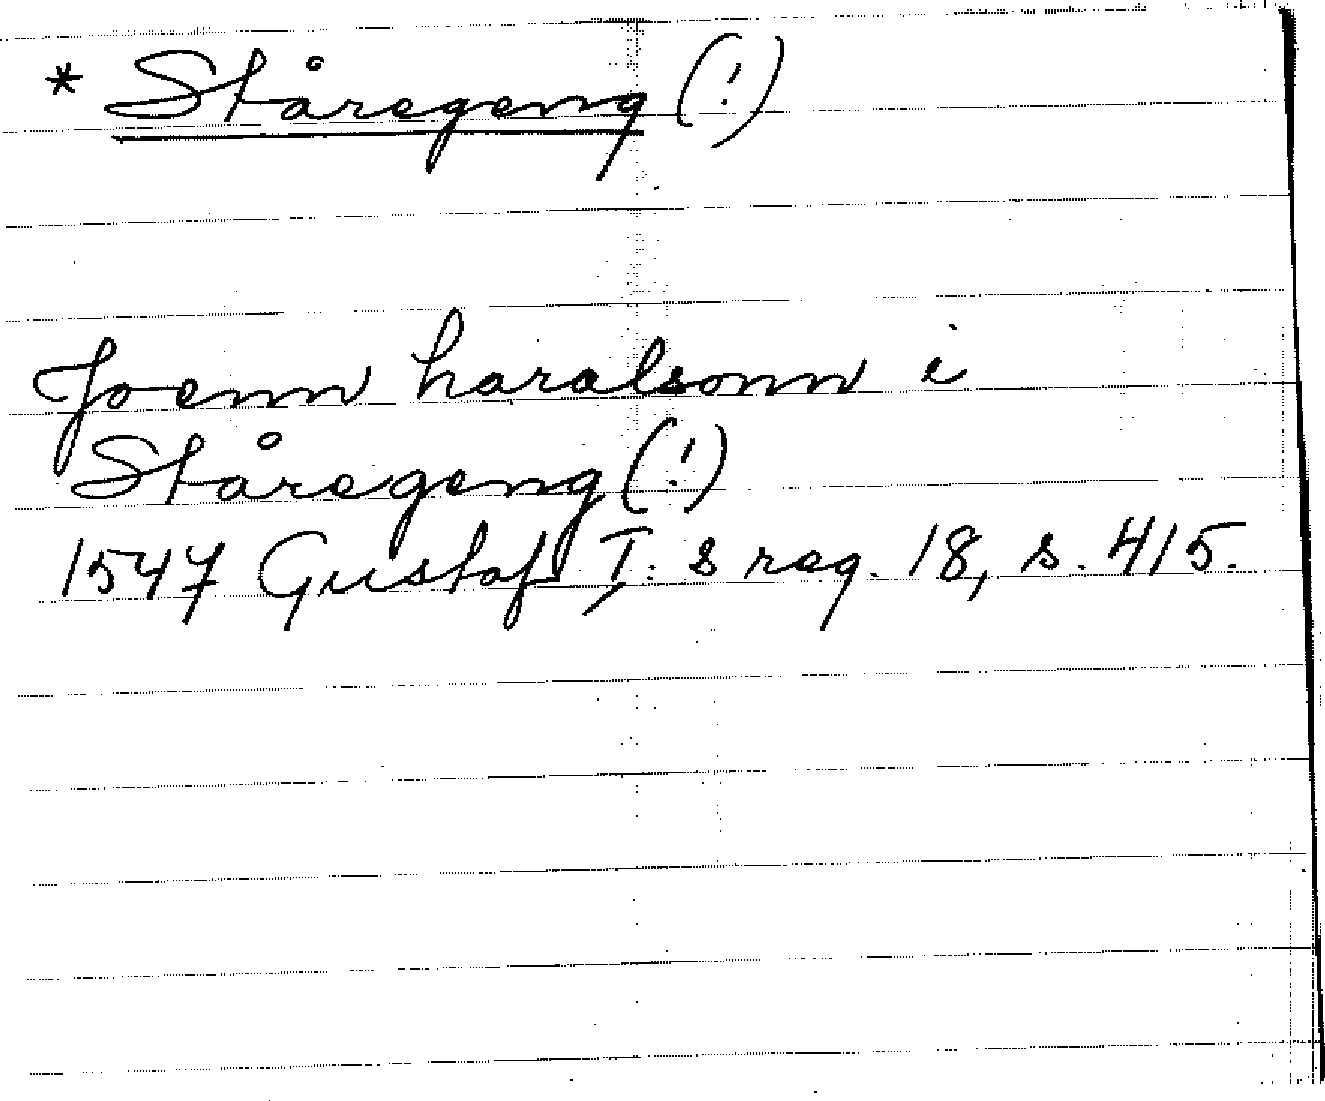 * Ståregeng (!)
Joenn haralsonn i
Ståregeng (!)
1547 Gustaf I:s reg. 18, s. 415.